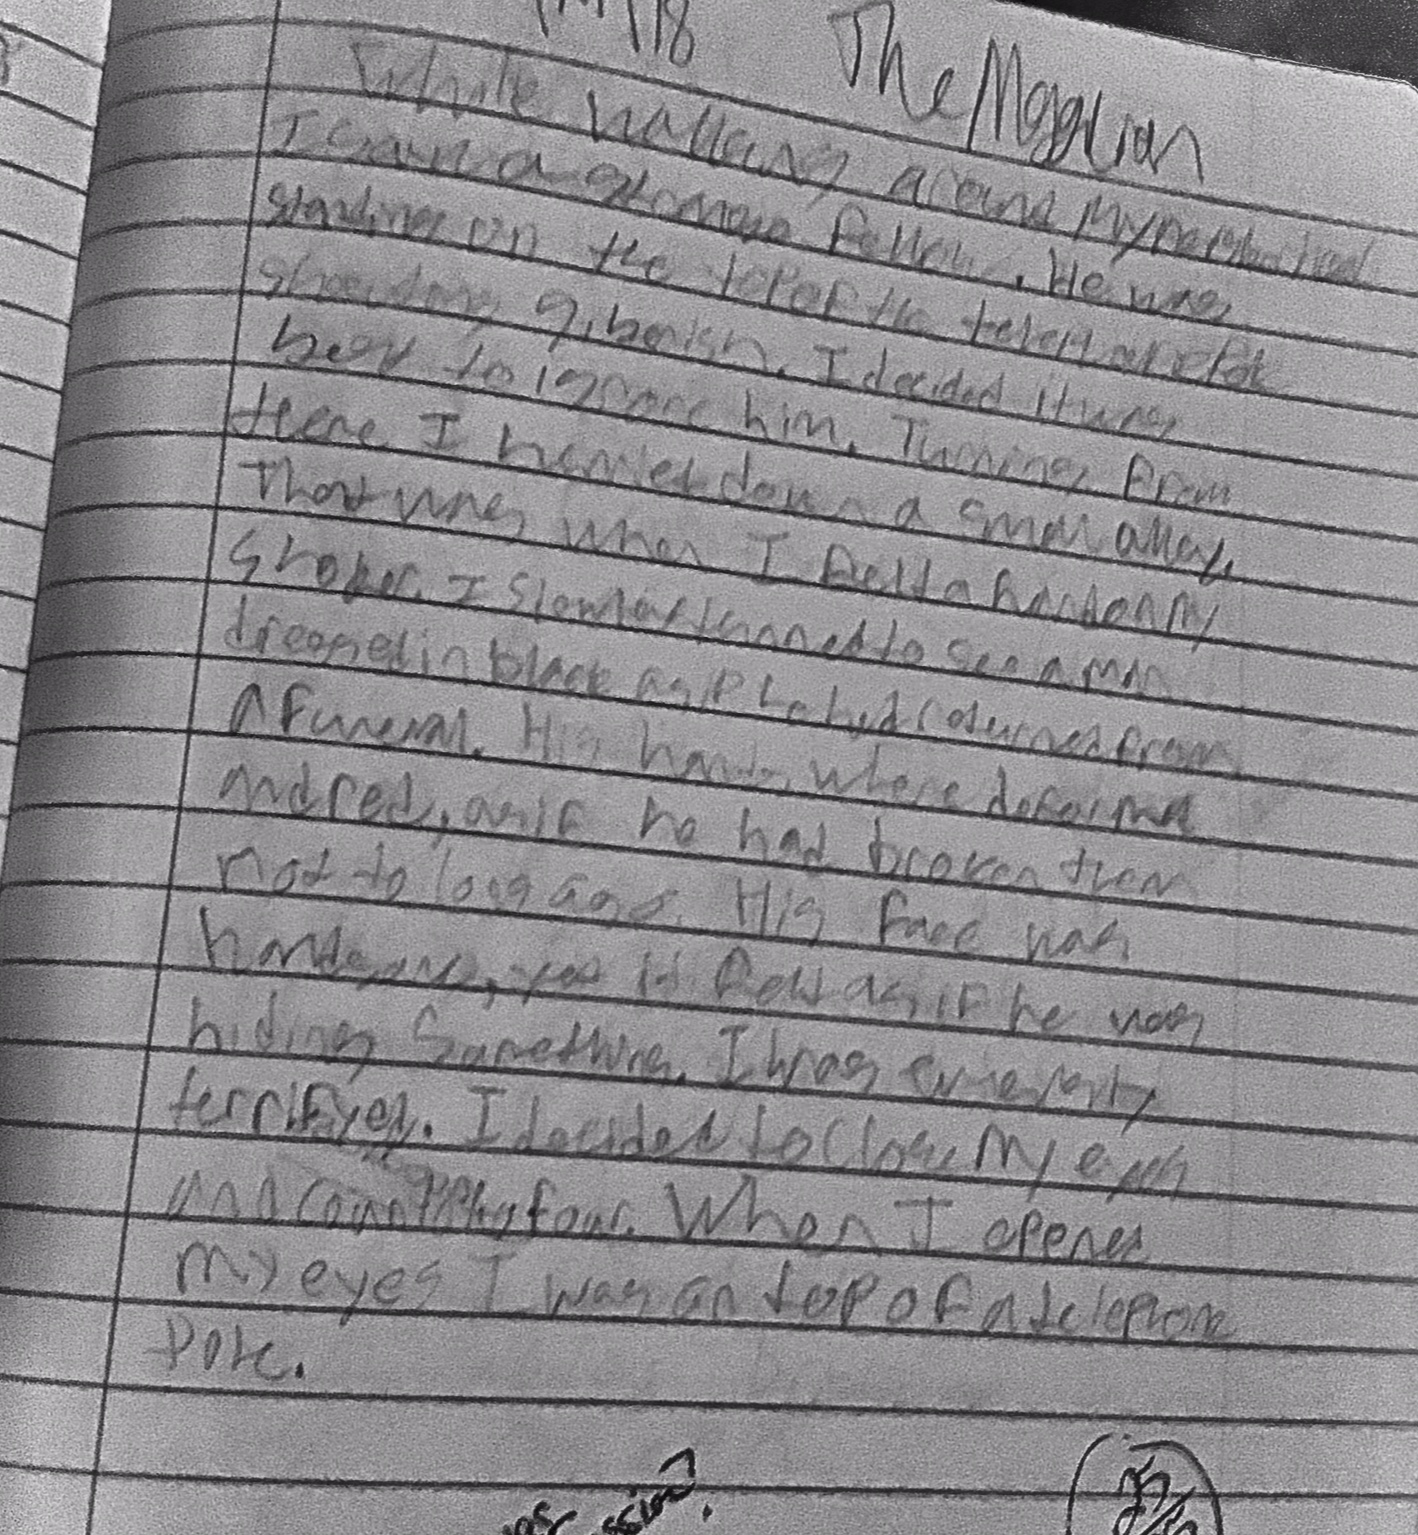 The Magician
While walking around my neighborhood
I saw a strange fellow. He was
standing on the top of the telephone pole
shouting giberish. I decided it was
best to ignore him. Turning from
there I headed down a small alley.
That was when I felt a hand on my
I slowly turned to see a man
dressed in black as if he had returned from
a funeral. His hands where deformed
and red, as if he had broken them
not to long ago. His face was
handsome, yet it felt as if he was
hiding something. I was
terrifyed. I decided to close my eyes
and count four. When I opened
my eyes I was on top of a telephone
pole.